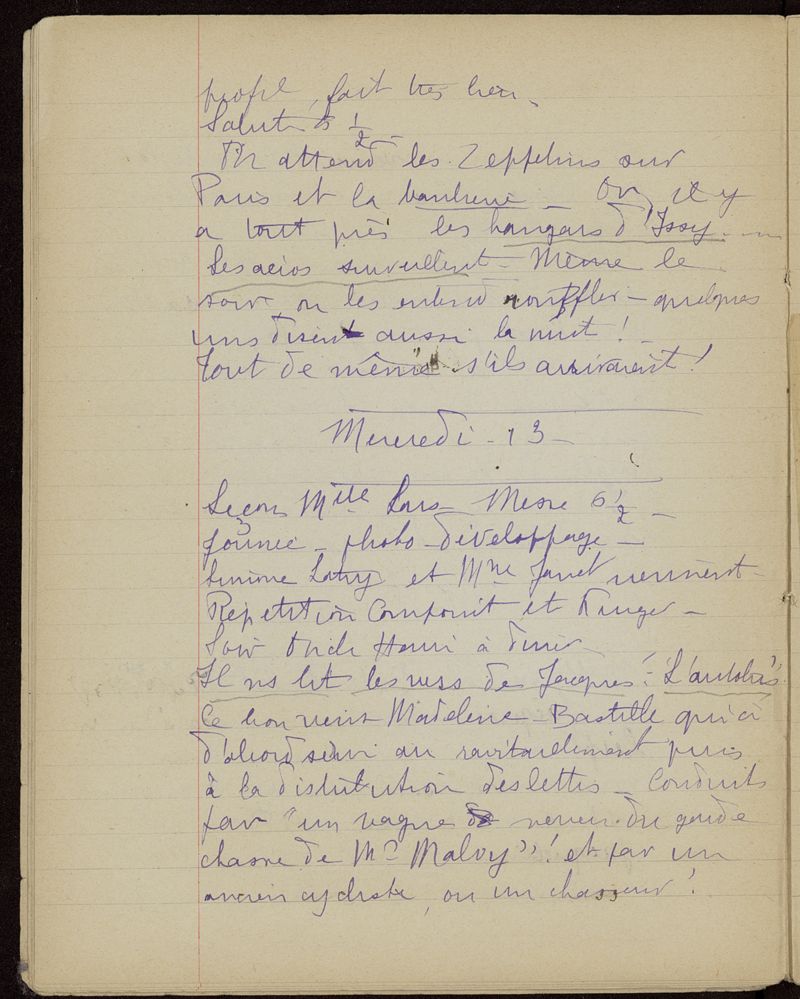 profil, fait très bien.
Salut 6 1/2 -
On attend les Zeppelins sur
Paris et la banlieue - Or, il y
a tout près les hangars d'Issy....
Les aéros surveillent - Même le
soir on les entend ronfler - quelques
uns disent aussi la nuit ! -
Tout de même s'ils arrivaient !
Mercredi - 13 -
Leçon Mlle - Messe 6 1/2 -
journée - photo - développage -
Simone et Mme Janet viennent -
Répétition et
Soir Oncle Henri à diner -
Il ns lit les vers de Jacques : "L'autobus"
Ce bon vieux Madeleine - Bastille qui a
d'abord servi au ravitaillement puis
à la distribution des lettres - Conduits
par "un vague neveu du garde
chasse de Mr Malvy" ! et par un
ancien cycliste, ou un chasseur !